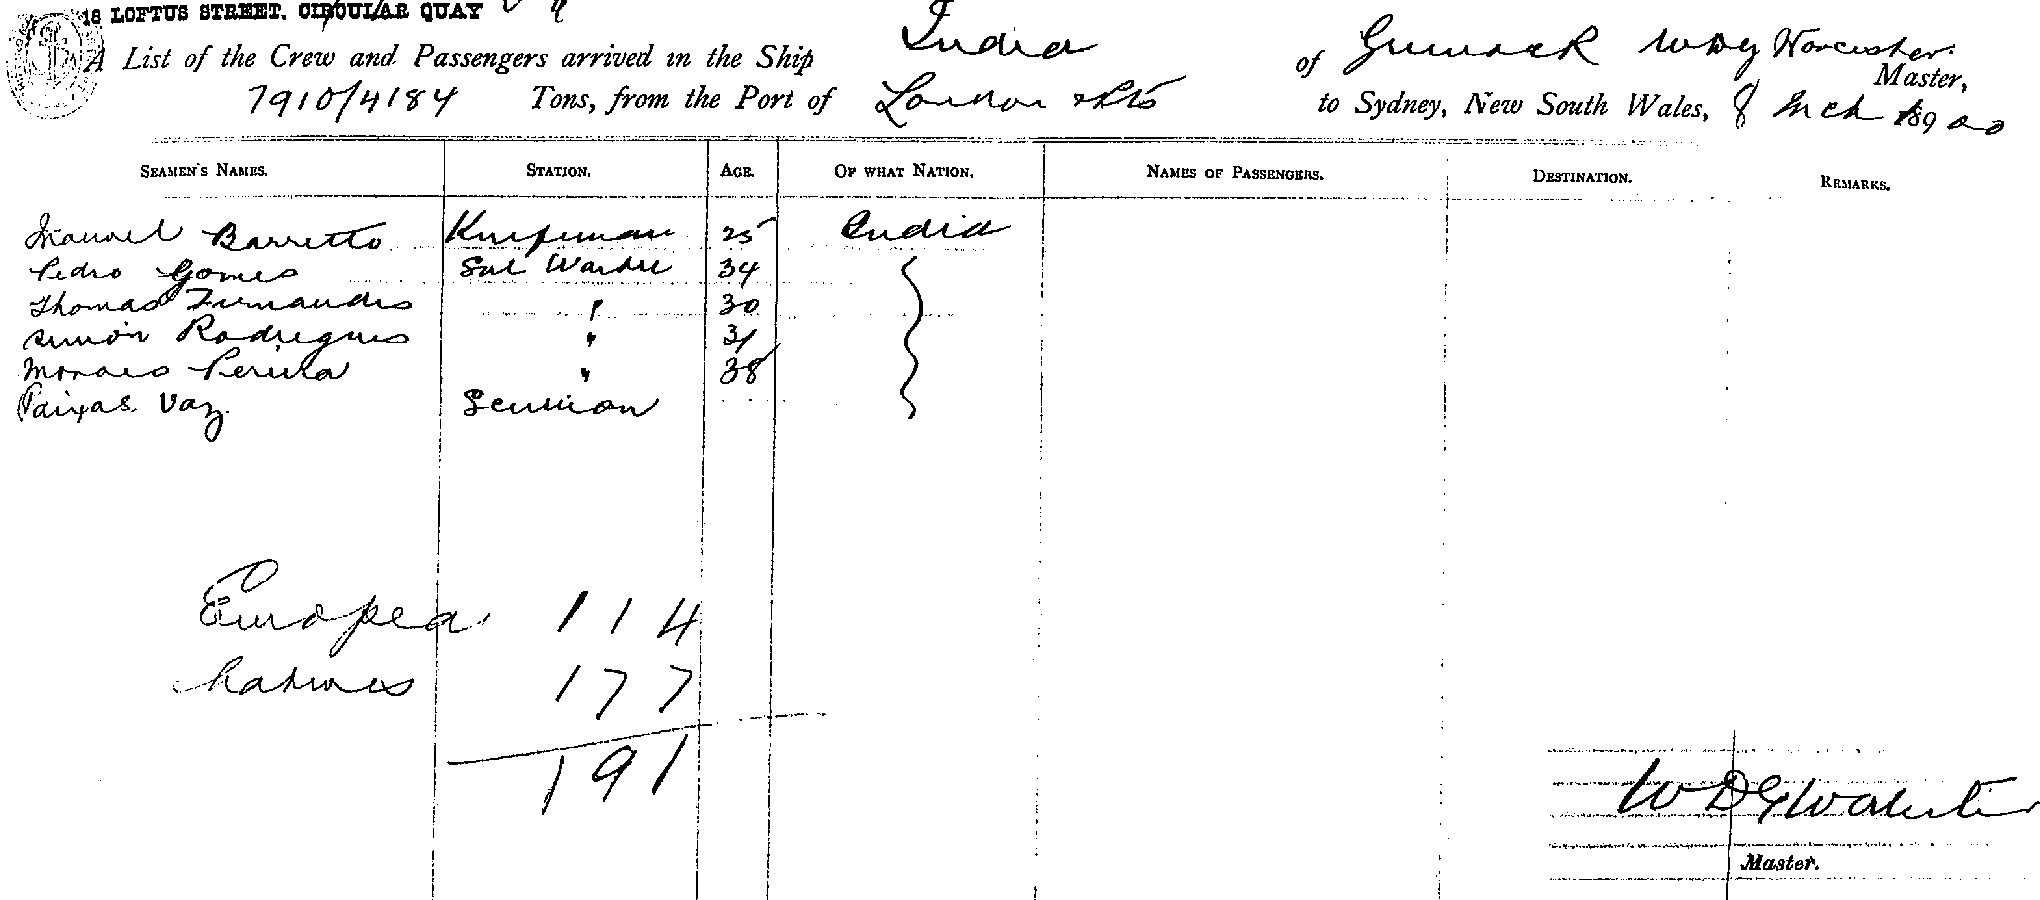 18 LOFTUS STREET. CIRCULAR QUAY
A List of the Crew and Passengers arrived in the Ship India of Greenock WDG Worcester Master,
7910/4184 Tons, from the Port of London & Pts to Sydney, New South Wales, 8 Mch 1900
SEAMEN'S NAMES. STATION. AGE. OF WHAT NATION. NAMES OF PASSENGERS. DESTINATION. REMARKS.
Manuel Barretto Knifeman 25 India
Pedro Gomes 34
Thomas Fernandes " 30
Simon Rodrigues " 31
Moraes Pereira " 38
Vaz Scullion
Europea 114
Natives 177
191
WDG Worcester
Master.